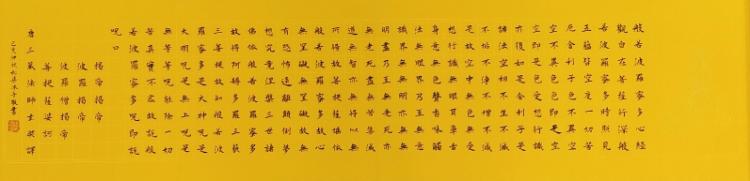 般若波羅蜜多心經
觀自在菩薩行深般
若波羅蜜多時照見
五蘊皆空度一切苦
厄舍利子色不異空
空不異色色即是空
空即是色受想行識
亦復如是舍利子是
諸法空相不生不滅
不垢不淨不增不減
是故空中無色無受
想行識無眼耳鼻舌
身意無色聲香味觸
法無眼界乃至無意
識界無無明亦無無
明盡乃至無老死亦
無老死盡無苦集滅
道無智亦無得以無
所得故菩提薩埵依
般若波羅蜜多故心
無罣礙無罣礙故無
有恐怖遠離顛倒夢
想究竟涅槃三世諸
佛依般若波羅蜜多
故得阿耨多羅三藐
三菩提故知般若波
羅蜜多是大神呪是
大明呪是無上呪是
無等等呪能除一切
苦真實不虛故說般
若波羅蜜多呪即說
呪曰
揭帝揭帝
波羅揭帝
波羅僧揭帝
菩提薩婆訶
唐三藏法師玄奘譯
敬書